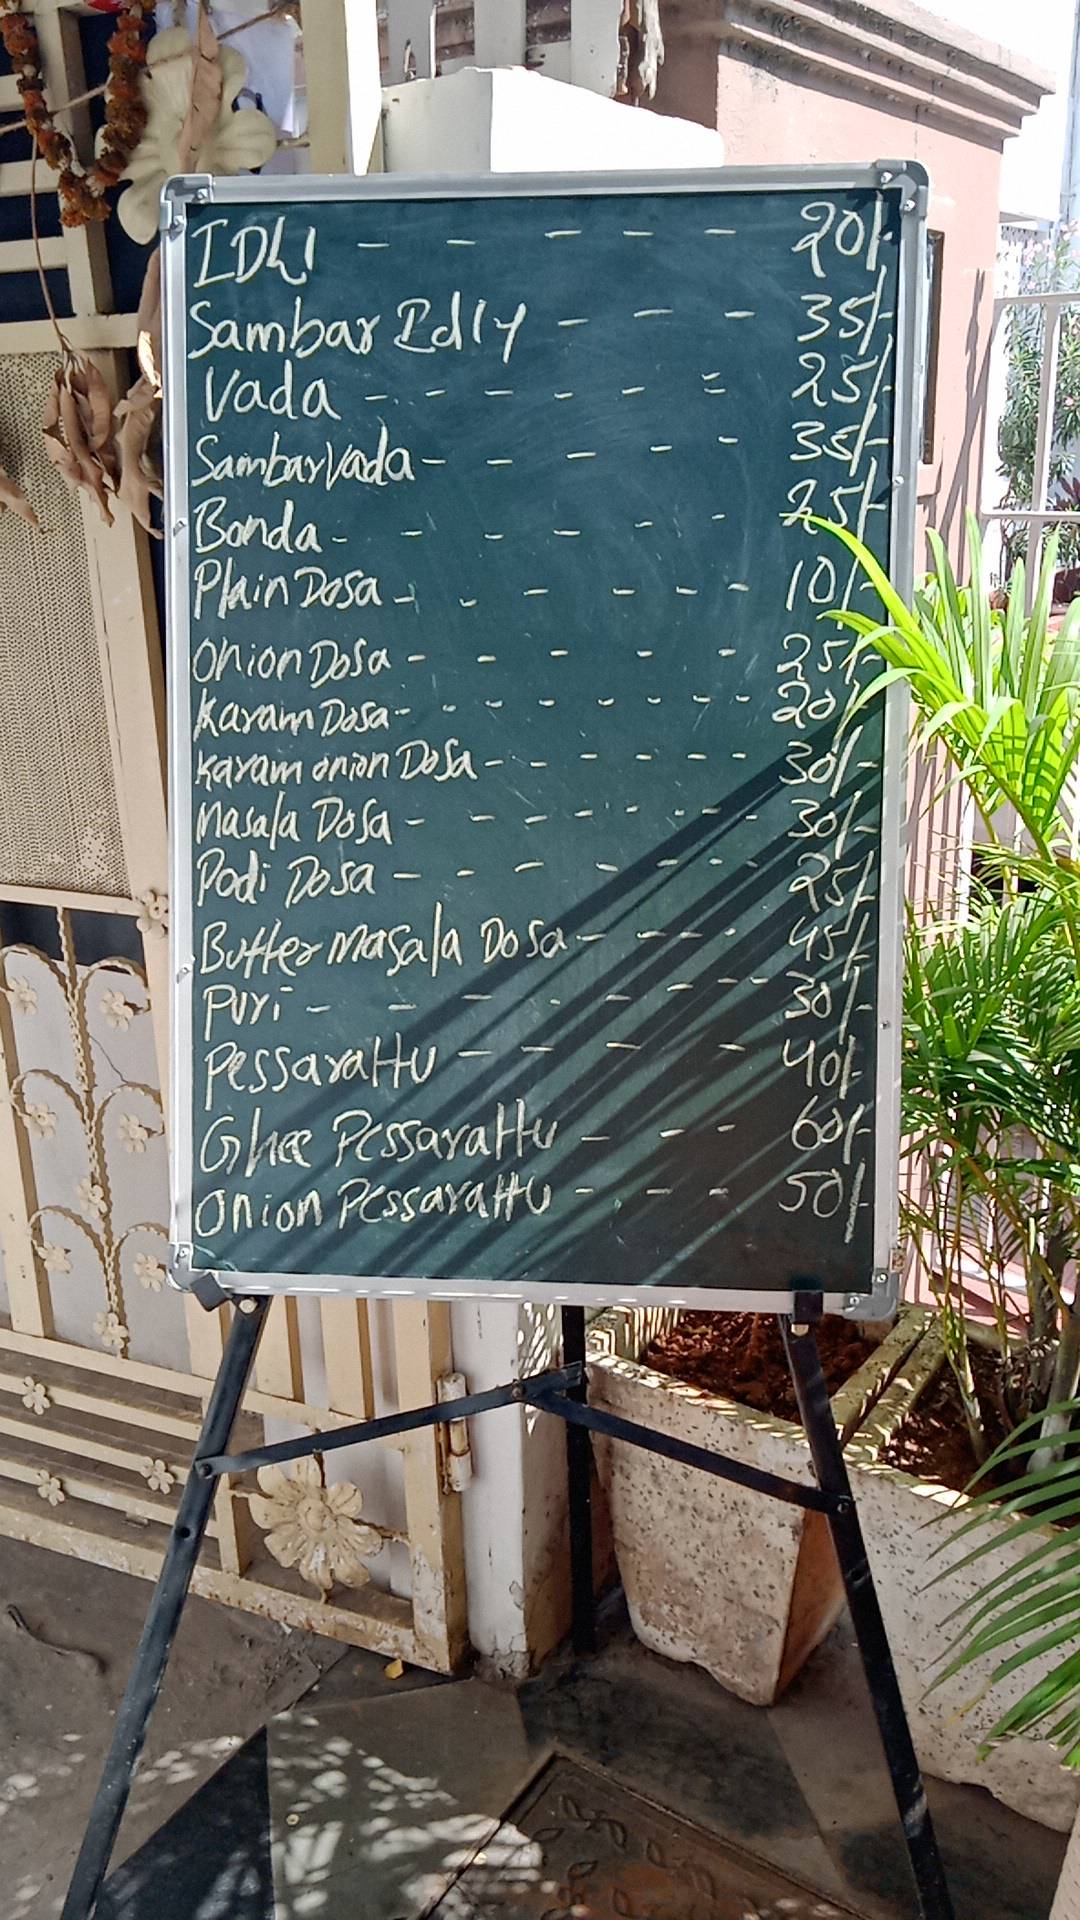 IDLI - - - - - 20/-
Sambar Idly - - - 35/-
Vada - - - - - = 25/-
Sambar Vada - - - - - 35/-
Bonda - - - - - - 25/-
Plain Dosa - - - - - - 10/-
Onion Dosa - - - - - 25/-
Karam Dosa - - - - - - - - 20/-
Karam onion Dosa - - - - - - 30/-
Masala Dosa - - - - - - - - 30/-
Podi Dosa - - - - - - - 25/-
Butter Masala Dosa - - - - - 45/-
Puri - - - - - - - - 30/-
Pessarattu - - - - 40/-
Ghee Pessarattu - - - 60/-
Onion Pessarattu - - - 50/-